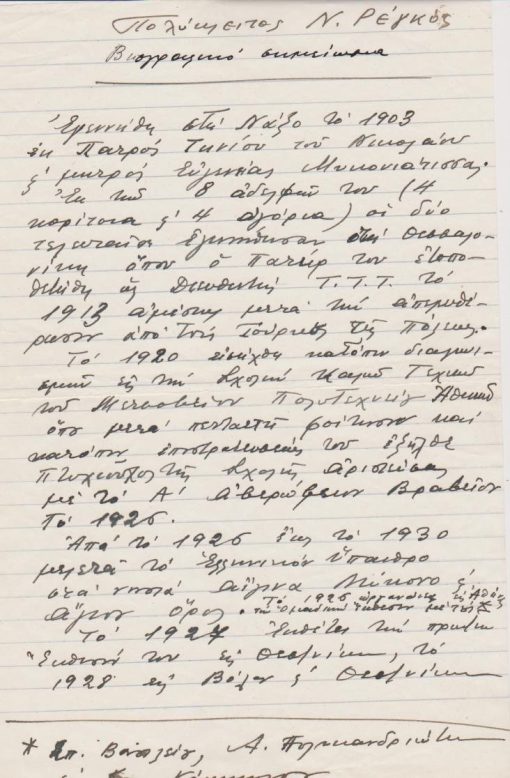 Πολύκλειτος Ν. Ρέγκος
Βιογραφικό σημείωμα
Ἐγεννήθη στή Νάξο τό 1903
ἐκ Πατρός Τηνίου τοῦ Νικολάου
ἐ μητρός Εὐγενίας Μυκονιάτισσας.
Ἐκ τῶν 8 ἀδελφῶν του (4
κορίτσια ἐ 4 ἀγόρια) οἱ δύο
τελευταῖοι ἐγεννήθησαν στή Θεσσαλο-
νίκη ὅπου ὁ Πατήρ του ἐτοπο-
θετήθη ὡς Διευθυντής Τ.Τ.Τ. τό
1913 ἀμέσως μετά τήν ἀπελευθέ-
ρωσιν ἀπό τούς Τούρκους τῆς πόλεως.
Τό 1920 εἰσήχθη κατόπιν διαγωνι-
σμοῦ εἰς τήν Σχολήν Καλῶν Τεχνῶν
τοῦ Μετσοβείου Πολυτεχνείου Ἀθηνῶν
ὅπου μετά πενταετῆ φοίτησιν καί
κατόπιν ἐπιστρατεύσεώς του ἐξῆλθε
πτυχιοῦχος τῆς Σχολῆς ἀριστεύσας
μέ τό Α' Ἀβερώφειον Βραβεῖον
τό 1926.
Ἀπό τό 1926 ἕως τό 1930
μελετᾶ τό Ἑλληνικόν ὕπαιθρο
στά νησιά Αἴγινα Μύκονο ἐ
Ἅγιον Ὄρος. Τό 1926 ὀργανώνει εἰς Ἀθήνας
τήν ὁμαδική ἔκθεσιν μέ τούς *
Τό 1927 ἐκθέτει τήν πρώτη
ἔκθεσί του εἰς Θεσ/νίκη, τό
1928 εἰς Βόλον ἐ Θεσ/νίκη
* Σπ. Βασιλείου, Α. Πολυκανδριώτη